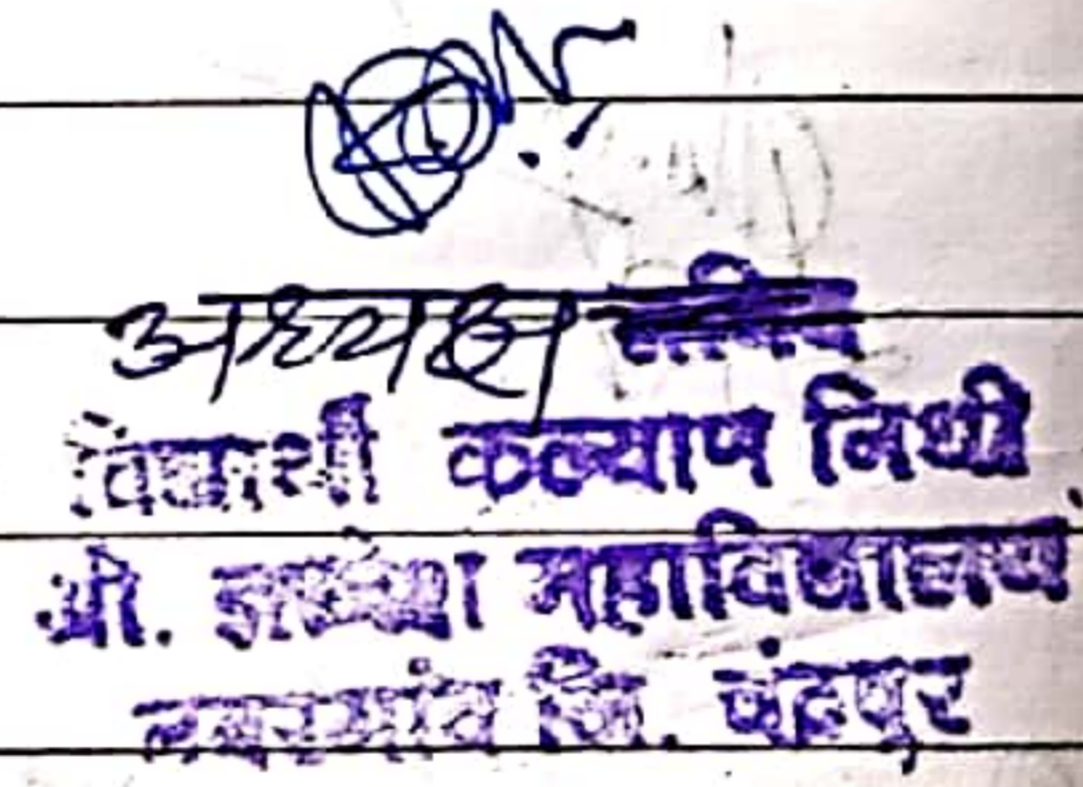 अध्यक्ष
विद्यार्थी कल्याण निधी
श्री. ज्ञानेश महाविद्यालय
नवरगांव जि. चंद्रपूर